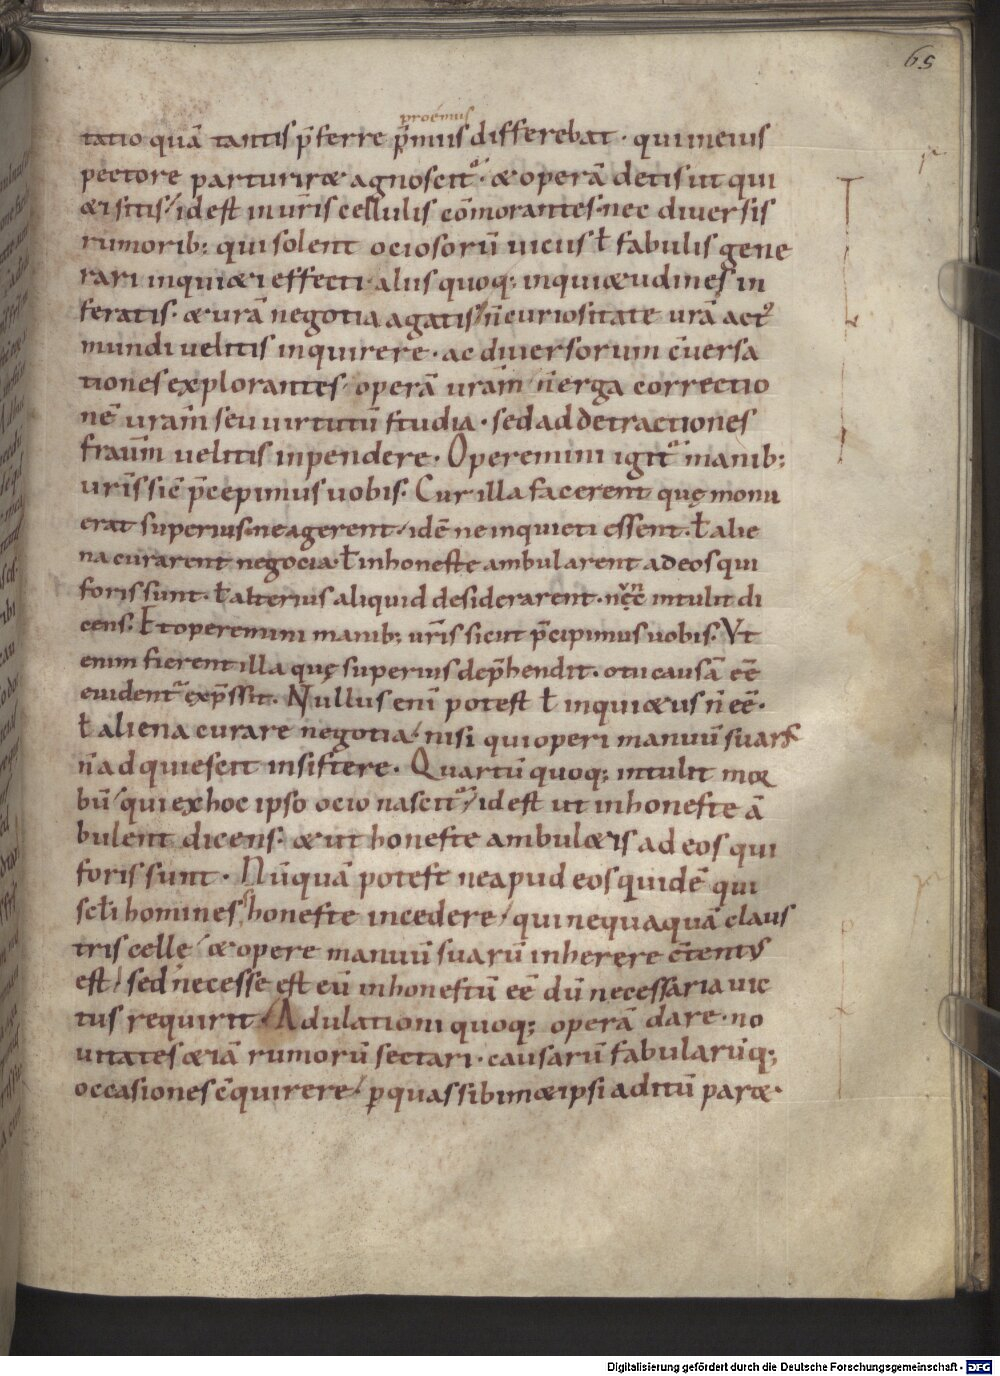 65
proemiis
tatio quā tantis p̄ferre p̄miis differebat · qui in eius
pectore parturiret agnoscit᷑ · et operā detis ut qui
eti sitis / id est in ur̄is cellulis cōmorantes · nec diversis
rumorib: qui solent ociosorū uicus ł fabulis gene
rari inquieti effecti · aliis quoq; inquietudines in
feratis · et urā negotia agatis / n̄ curiositate urā act᷒
mundi uelitis inquirere · ac diversorum c̄uersa
tiones explorantes / operā urām / n̄ erga correctio
nē urām seu uirtutū studia · sed ad detractiones
fraūm uelitis inpendere · Operemini igit᷑ manib:
ur̄is sic̄ p̄cepimus uobis · Cur illa facerent quę monu
erat superius · ne agerent / idē ne inquieti essent · ł alie
na curarent negocia · ł inhoneste ambularent ad eos qui
foris sunt · ł alterius aliquid desiderarent · intulit di
cens · Et operemini manib; ur̄is sicut p̄cipimus uobis · Vt
enim fierent illa quę superius dep̄hendit · otii causā eē
euident᷑ exp̄ssit · Nullus enī potest ł inquietus n̄ eē ·
ł aliena curare negotia / nisi qui operi manuū suarꝝ
n̄ adquiescit insistere · Quartū quoq; intulit morꝫ
bū / qui ex hoc ipso ocio nascit᷑ / id est ut inhoneste ā
bulent dicens · et ut honeste ambuletis ad eos qui
foris sunt · Nūquā potest ne apud eos quidē qui
scłi homines honeste incedere / qui nequaquā claus
tris cellę / et opere manuū suarū inherere c̄tentus
est / sed necesse est eū inhonestū eē dū necessaria uic
tus requirit / Adulationi quoq; operā dare · no
uitates etiā rumorū sectari · causarū fabularūq;
occasiones c̄quirere / ꝑ quas sibimet ipsi aditū paret ·
Digitalisierung gefördert durch die Deutsche Forschungsgemeinschaft - DFG